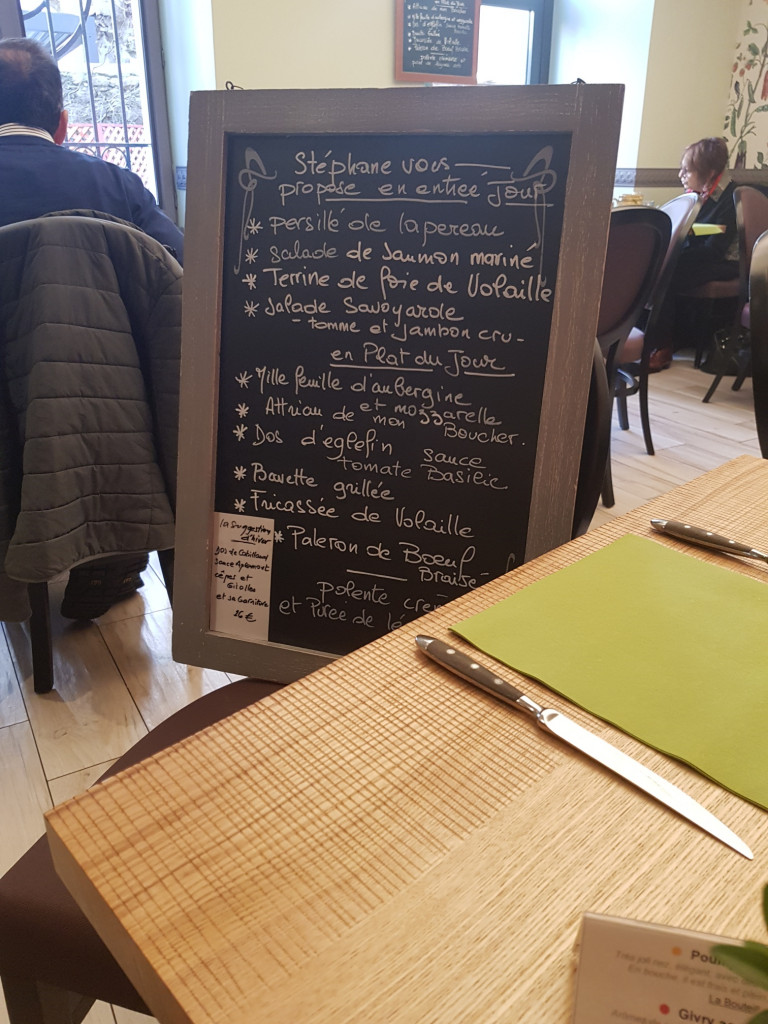 Stéphane vous
propose en entrée Jour
* persillé de lapereau
* salade de Saumon mariné
* Terrine de foie de Volaille
* Salade Savoyarde
- tomme et Jambon cru -
en Plat du Jour
* Mille feuille d'aubergine
et mozzarelle
* Attriau de mon Boucher.
* Dos d'eglefin sauce
tomate Basilic
* Bavette grillée
* Fricassée de Volaille
* Paleron de Boeuf
Braisé
polente
et Purée de
la Suggestion
d'hiver
Dos de Cabillaud
sauce
cèpes et
Girolles
et sa Garniture
16 €
La
Givry